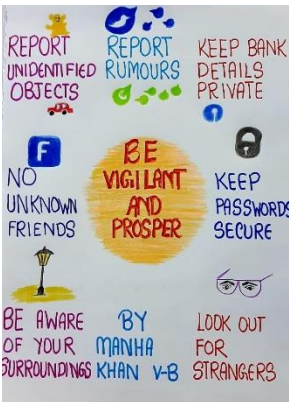 REPORT
UNIDENTIFIED
OBJECTS
REPORT
RUMOURS
KEEP BANK
DETAILS
PRIVATE
F
NO
UNKNOWN
FRIENDS
BE
VIGILANT
AND
PROSPER
KEEP
PASSWORDS
SECURE
BE AWARE
OF YOUR
SURROUNDINGS
BY
MANHA
KHAN V-B
LOOK OUT
FOR
STRANGERS